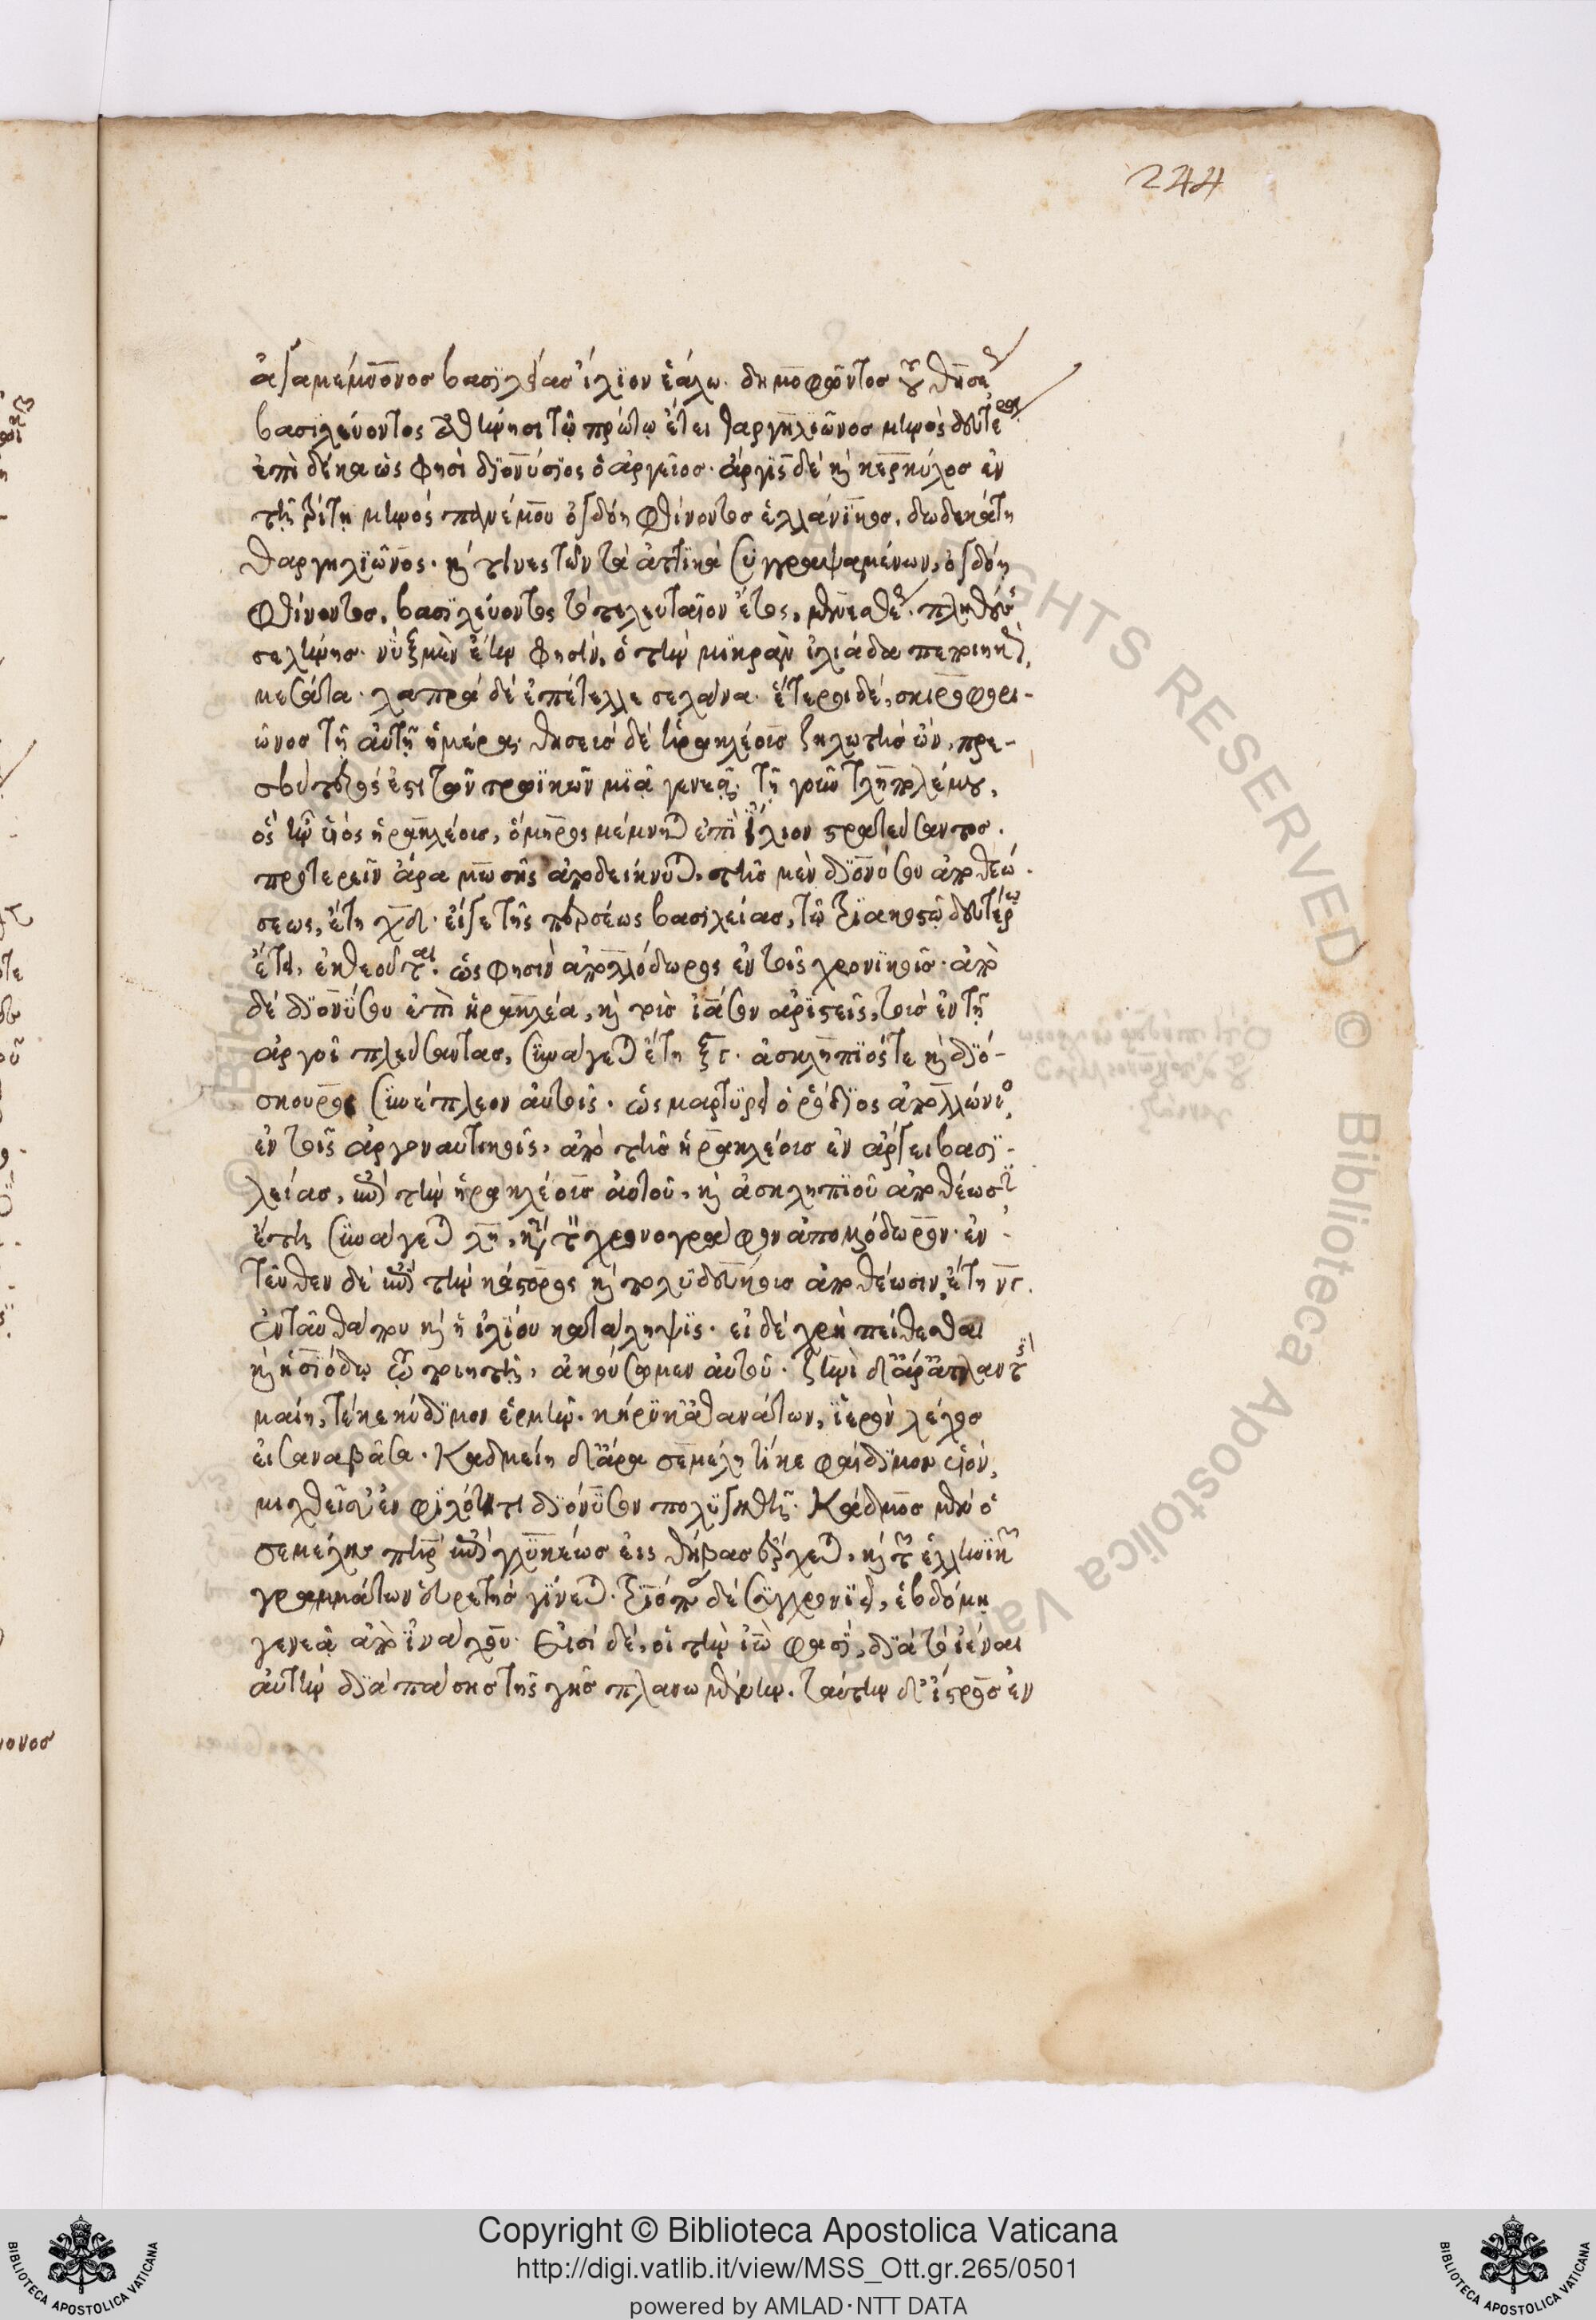 244
ἀγαμέμνονος βασιλείας ἴλιον ἑάλω. δημοφῶντος τοῦ θησέως
βασιλεύοντος ἀθήνησι τῷ πρώτῳ ἔτει θαργηλιῶνος μηνὸς δευτέρα
ἐπὶ δέκα ὥς φησι διονύσιος ὁ ἀργεῖος. ἀργῖς δὲ καὶ κερκύλος ἐν
τῇ τρίτῃ μηνός πανέμου ὀγδόη φθίνοντος ἑλλάνικος, δωδεκάτη
θαργηλιῶνος. καὶ τινες τῶν τὰ ἀττικὰ συγγραψαμένων, ὀγδόη
φθίνοντος, βασιλεύοντος τὸ τελευταῖον ἔτος, μενεσθέως. πληθούσης
σελήνης. νὺξ μὲν ἔην φησὶν, ὁ τὴν μικρὰν ἰλιάδα πεποιηκὼς,
μεσάτα. λαπρά δὲ ἐπέτελλε σελάνα. ἕτεροι δὲ, σκιροφορι-
ῶνος τῇ αὐτῇ ἡμέρᾳ. θησεὺς δὲ ἡρακλέους ζηλωτὴς ὢν, πρε-
σβύτερός ἐστι τῶν τρωϊκῶν μιᾷ γενεᾷ. τῇ γοῦν τληπολέμου,
ὃς ἦν υἱὸς ἡρακλέους, ὅμηρος μέμνηται ἐπὶ ἴλιον στρατεύσαντος.
προτερεῖν ἄρα μωσῆς ἀποδείκνυται. τῆς μὲν διονύσου ἀποθεώ-
σεως, ἔτη χδ. εἴγε τῆς περσέως βασιλείας, τῷ τριακοστῷ δευτέρῳ
ἔτει, ἐκθεοῦται. ὥς φησιν ἀπολλόδωρος ἐν τοῖς χρονικοῖς. ἀπὸ
δὲ διονύσου ἐπὶ ἡρακλέα, καὶ τοὺς ἰάσων ἀριστεῖς, τοὺς ἐν τῇ
ἀργοῖ πλεύσαντας, συνάγεται ἔτη ξγ. ἀσκληπιός τε καὶ διό-
σκουροι συνέπλεον αὐτοῖς. ὡς μαρτυρεῖ ὁ ῥόδιος ἀπολλώνιος,
ἐν τοῖς ἀργοναυτικοῖς, ἀπὸ τῆς ἡρακλέους ἐν ἄργει βασι-
λείας, ἐπὶ τὴν ἡρακλέους αὐτοῦ, καὶ ἀσκληπιοῦ ἀποθέωσιν,
ἔτη συνάγεται λη, κατὰ τὸν χρονογράφον ἀπολλόδωρον. ἐν-
τεῦθεν δὲ ἐπὶ τὴν κάστορος καὶ πολυδεύκους ἀποθέωσιν, ἔτη νγ.
ἐνταῦθά που καὶ ἡ ἰλίου κατάληψις. εἰ δὲ χρὴ πείθεσθαι
καὶ ἡσιόδῳ τῷ ποιητῇ, ἀκούσωμεν αὐτοῦ. ζηνὶ δ' ἄρ' ἀτλαντὶς
μαίη, τέκε κύδιμον ἑρμῆν. κήρυκ' ἀθανάτων, ἱερὸν λέχος
εἰσαναβᾶσα. Καδμείη δ' ἄρα σεμέλη τέκε φαίδιμον υἱόν,
μιχθεῖσ' ἐν φιλότητι διόνυσον πολυγηθῆ. Κάδμος μὲν ὁ
σεμέλης πατὴρ ἐπὶ λυγκέως εἰς θήβας ἔρχεται, καὶ τῶν ἑλληνικῶν
γραμμάτων εὑρετὴς γίνεται. τριόπας δὲ συγχρονεῖ, ἑβδόμη
γενεᾷ ἀπὸ ἰνάχου. Εἰσὶ δὲ, οἳ τὴν ἰὼ φασὶ, διὰ τὸ ἰέναι
αὐτὴν διὰ πάσης τῆς γῆς πλανωμένην. ταύτην δ' ἴστρος ἐν
Copyright © Biblioteca Apostolica Vaticana
http://digi.vatlib.it/view/MSS_Ott.gr.265/0501
powered by AMLAD·NTT DATA
BIBLIOTECA APOSTOLICA VATICANA
BIBLIOTECA APOSTOLICA VATICANA